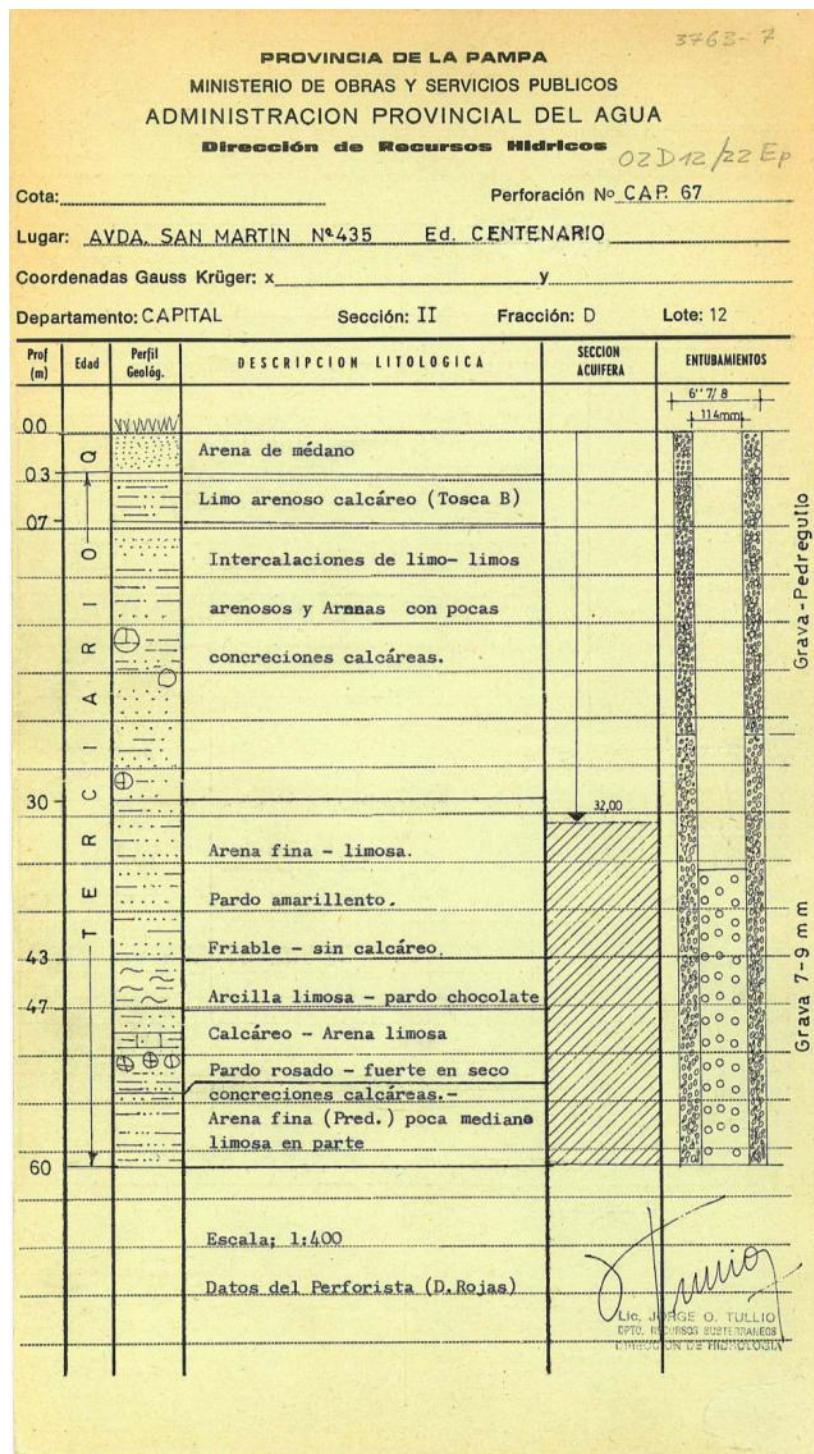 3763-7
PROVINCIA DE LA PAMPA
MINISTERIO DE OBRAS Y SERVICIOS PUBLICOS
ADMINISTRACION PROVINCIAL DEL AGUA
Dirección de Recursos Hídricos
02D12/22 Ep
Cota:
Perforación Nº CAP. 67
Lugar: AVDA. SAN MARTIN Nº435 Ed. CENTENARIO
Coordenadas Gauss Krüger: x y
Departamento: CAPITAL Sección: II Fracción: D Lote: 12
Prof (m)
Edad
Perfil Geológ.
DESCRIPCION LITOLOGICA
SECCION ACUIFERA
ENTUBAMIENTOS
6'' 7/8
114mm
00
Q
Arena de médano
03
Limo arenoso calcáreo (Tosca B)
07
TERCIARIO
Intercalaciones de limo- limos
arenosos y Arnnas con pocas
concreciones calcáreas.
Grava-Pedregullo
30
32,00
Arena fina - limosa.
Pardo amarillento.
Friable - sin calcáreo.
43
Arcilla limosa - pardo chocolate
47
Calcáreo - Arena limosa
Pardo rosado - fuerte en seco
concreciones calcáreas.-
Arena fina (Pred.) poca mediana
limosa en parte
Grava 7-9 mm
60
Escala; 1:400
Datos del Perforista (D.Rojas)
Lic. JORGE O. TULLIO
DPTO. RECURSOS SUBTERRANEOS
DIRECCION DE HIDROLOGIA